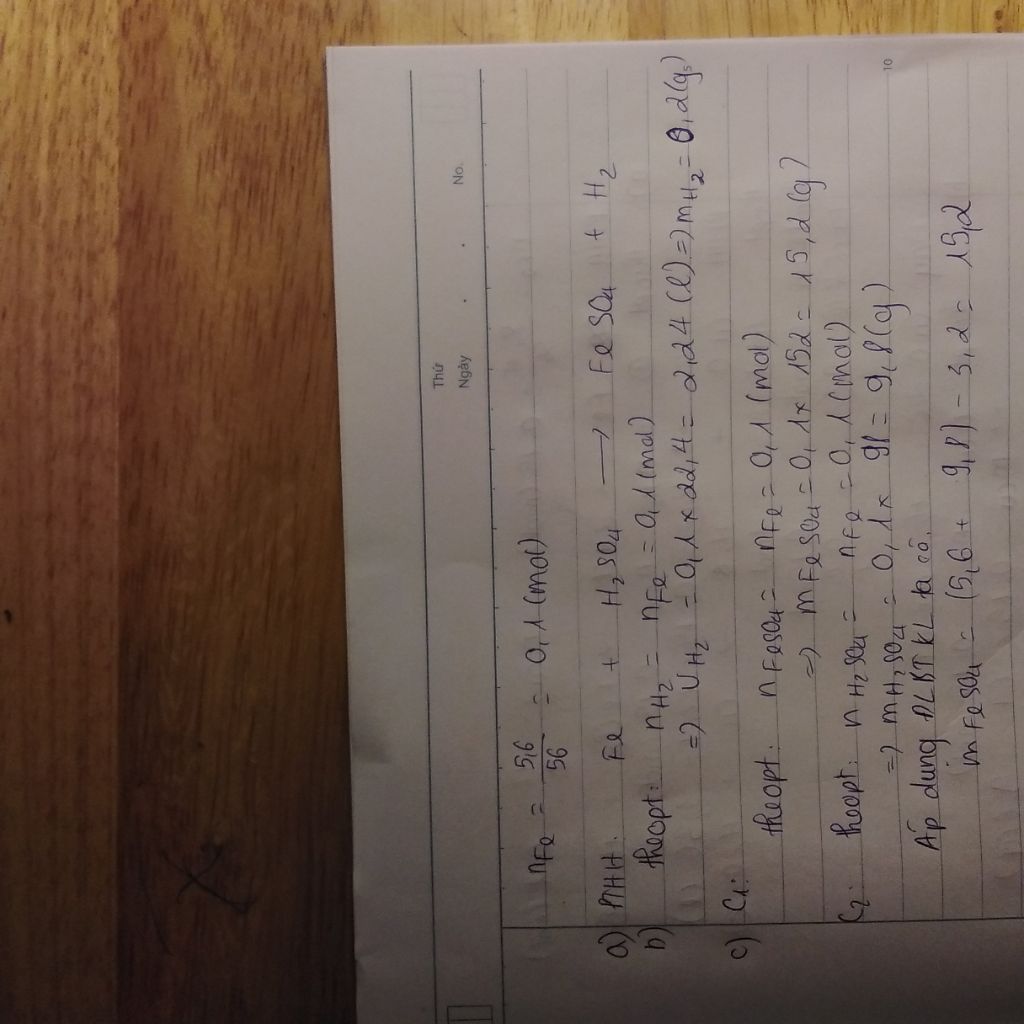 Thứ
Ngày
No.
nFe = 5,6/56 = 0,1 (mol)
a) PTHH: Fe + H₂SO₄ → FeSO₄ + H₂
b) theopt: nH₂ = nFe = 0,1 (mol)
=) VH₂ = 0,1 x 22,4 = 2,24 (l) =) mH₂ = 0,2 (g)
c) C₁:
theopt: nFeSO₄ = nFe = 0,1 (mol)
=) mFeSO₄ = 0,1 x 152 = 15,2 (g)
C₂: theopt: nH₂SO₄ = nFe = 0,1 (mol)
=) mH₂SO₄ = 0,1 x 98 = 9,8 (g)
Áp dụng ĐLBTKL ta có.
mFeSO₄ = (5,6 + 9,8) - 3,2 = 15,2
10